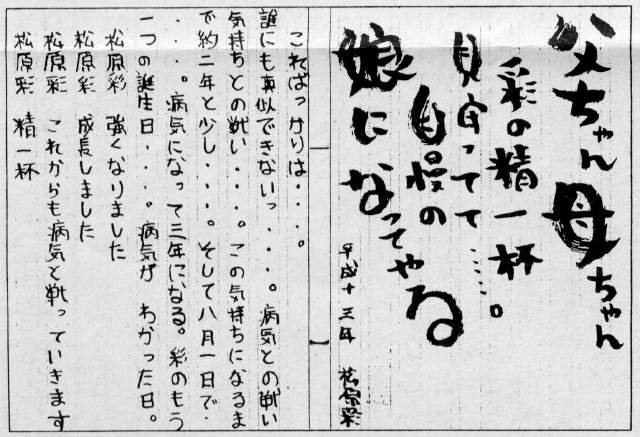 父ちゃん母ちゃん
彩の精一杯。
見守ってて……
自慢の
娘になってやる
平成十三年 松原彩
こればっかりは・・・。
誰にも真似できないっ・・・・。病気との戦い
気持ちとの戦い・・・・。この気持ちになるま
で約二年と少し・・・。そして八月一日で・
・・・。病気になって三年になる。彩のもう
一つの誕生日・・・。病気が わかった日。
松原彩 強くなりました
松原彩 成長しました
松原彩 これからも病気と戦っていきます
松原彩 精一杯